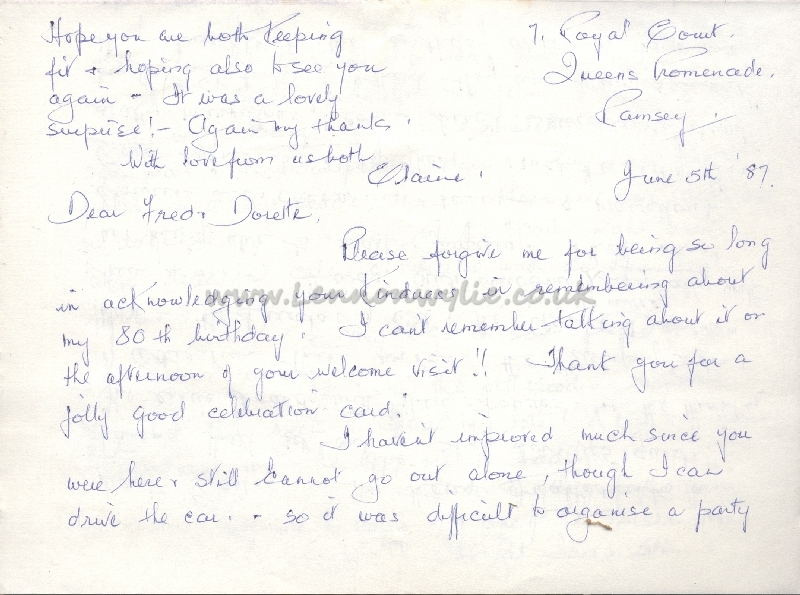 Hope you are both keeping
fit & hoping also to see you
again - It was a lovely
surprise! - Again my thanks.
With love from us both
Elaine.
7. Royal Court.
Queens Promenade.
Ramsey.
June 5th '87.
Dear Fred & Dorette,
Please forgive me for being so long
in acknowledging your kindness in remembering about
my 80th birthday. I cant remember talking about it on
the afternoon of your welcome visit!! Thank you for a
jolly good celebration card.
I haven't improved much since you
were here & still cannot go out alone, though I can
drive the car. - so it was difficult to organise a party
www.lennonwylie.co.uk